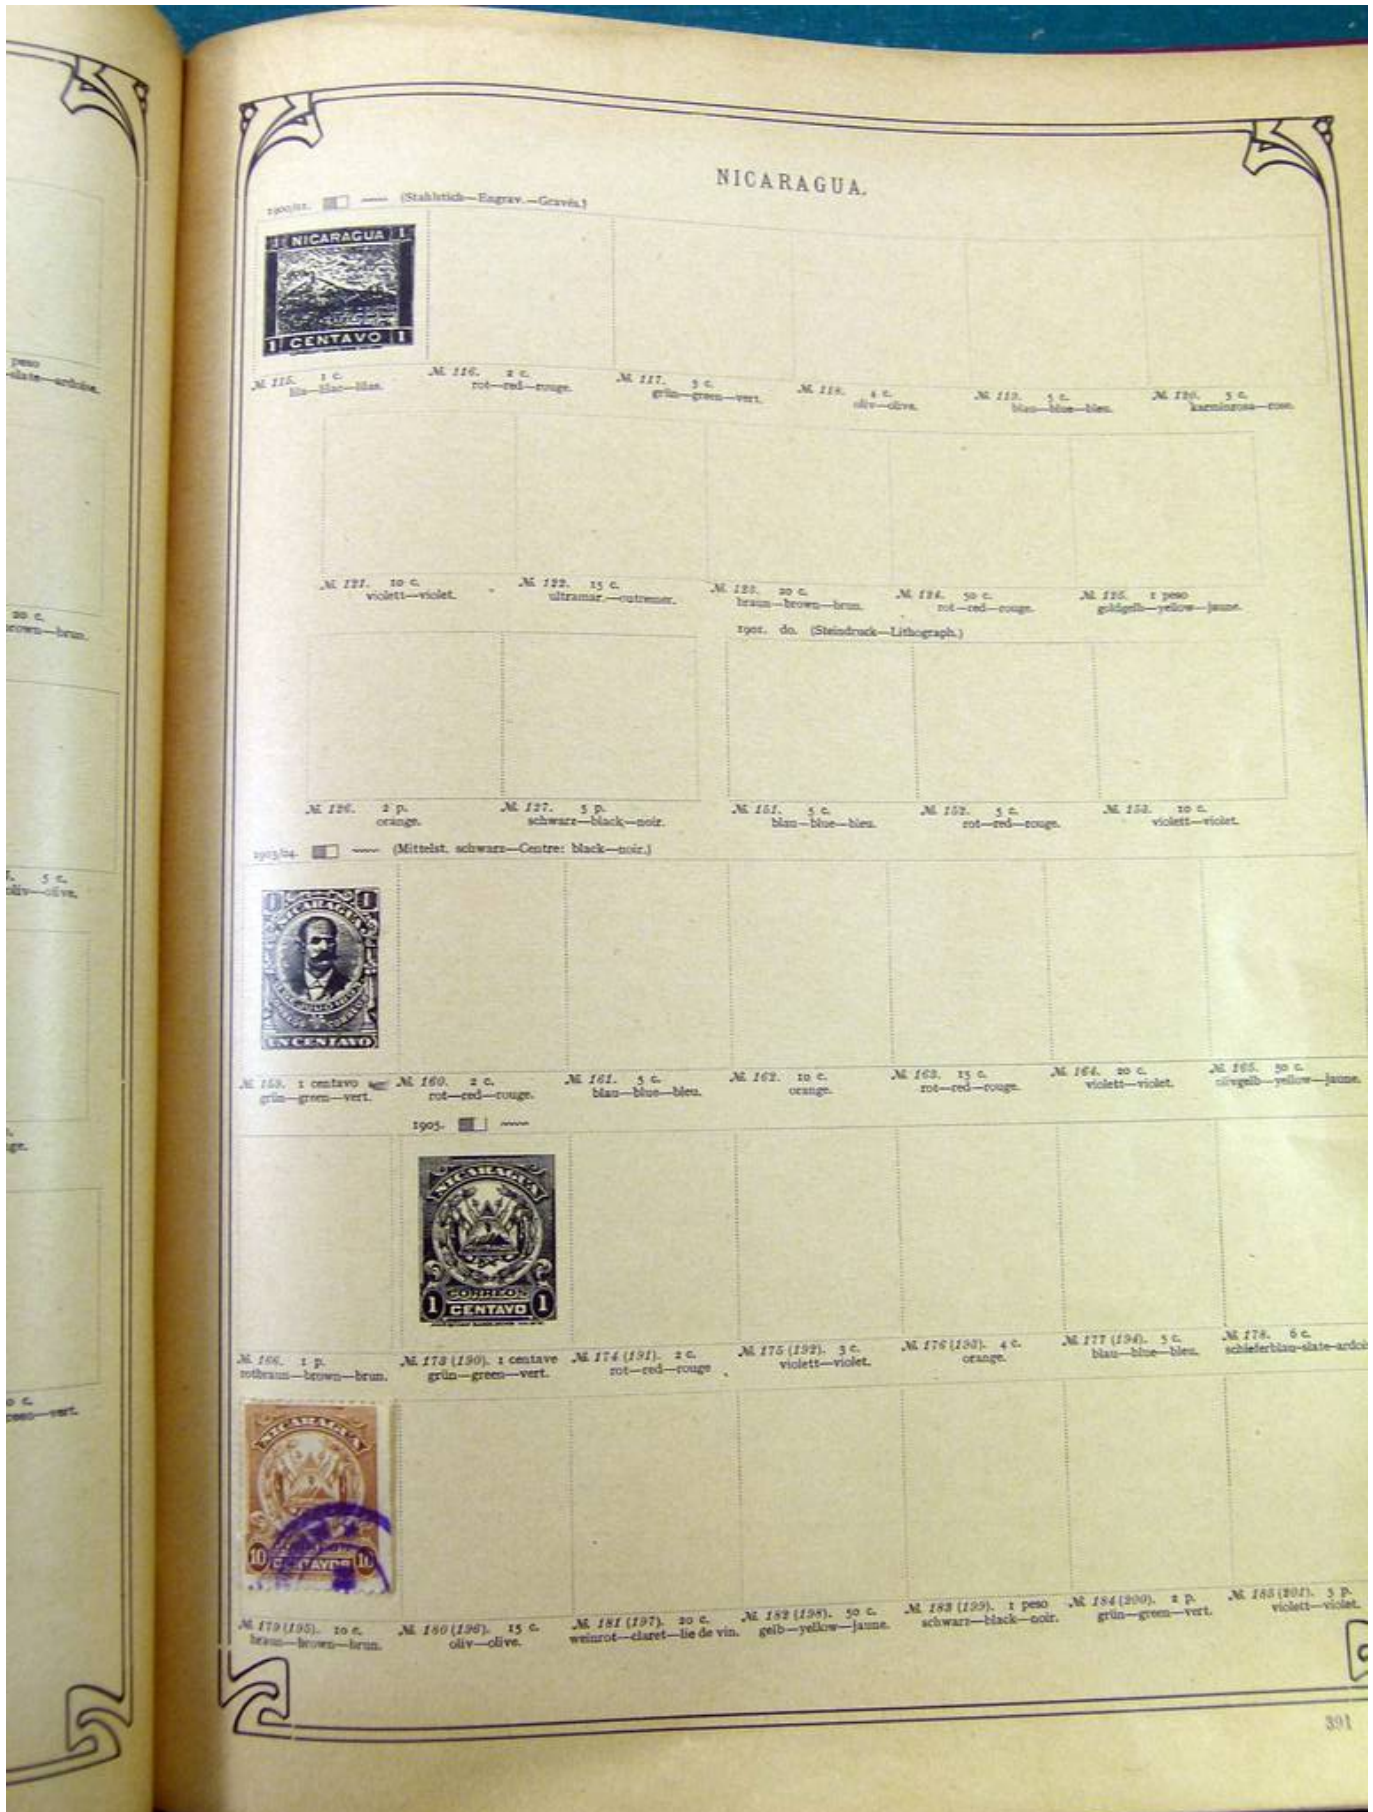 NICARAGUA.
1900/02. (Stahlstich—Engrav.—Gravés.)
1 NICARAGUA 1
1 CENTAVO 1
№ 115. 1 c.
lila—lilac—lilas.
№ 116. 2 c.
rot—red—rouge.
№ 117. 3 c.
grün—green—vert.
№ 118. 4 c.
oliv—olive.
№ 119. 5 c.
blau—blue—bleu.
№ 120. 5 c.
karminrosa—rose.
№ 121. 10 c.
violett—violet.
№ 122. 15 c.
ultramar.—outremer.
№ 123. 20 c.
braun—brown—brun.
№ 124. 50 c.
rot—red—rouge.
№ 125. 1 peso
goldgelb—yellow—jaune.
1901. do. (Steindruck—Lithograph.)
№ 126. 2 p.
orange.
№ 127. 5 p.
schwarz—black—noir.
№ 151. 5 c.
blau—blue—bleu.
№ 152. 5 c.
rot—red—rouge.
№ 153. 10 c.
violett—violet.
1903/04. (Mittelst. schwarz—Centre: black—noir.)
1 1
NICARAGUA
UN CENTAVO
№ 159. 1 centavo
grün—green—vert.
№ 160. 2 c.
rot—red—rouge.
№ 161. 5 c.
blau—blue—bleu.
№ 162. 10 c.
orange.
№ 163. 15 c.
rot—red—rouge.
№ 164. 20 c.
violett—violet.
№ 165. 50 c.
olivgelb—yellow—jaune.
1905.
NICARAGUA
CORREOS
1 CENTAVO 1
№ 166. 1 p.
rotbraun—brown—brun.
№ 173 (190). 1 centave
grün—green—vert.
№ 174 (191). 2 c.
rot—red—rouge
№ 175 (192). 3 c.
violett—violet.
№ 176 (193). 4 c.
orange.
№ 177 (194). 5 c.
blau—blue—bleu.
№ 178. 6 c.
schieferblau-slate-ardois
NICARAGUA
10 CENTAVOS 10
№ 179 (195). 10 c.
braun—brown—brun.
№ 180 (196). 15 c.
oliv—olive.
№ 181 (197). 20 c.
weinrot—claret—lie de vin.
№ 182 (198). 50 c.
gelb—yellow—jaune.
№ 183 (199). 1 peso
schwarz—black—noir.
№ 184 (200). 2 p.
grün—green—vert.
№ 185 (201). 5 p.
violett—violet.
391
peso
slate—ardoise.
20 c.
rown—brun.
5 c.
oliv—olive.
ge.
0 c.
reen—vert.